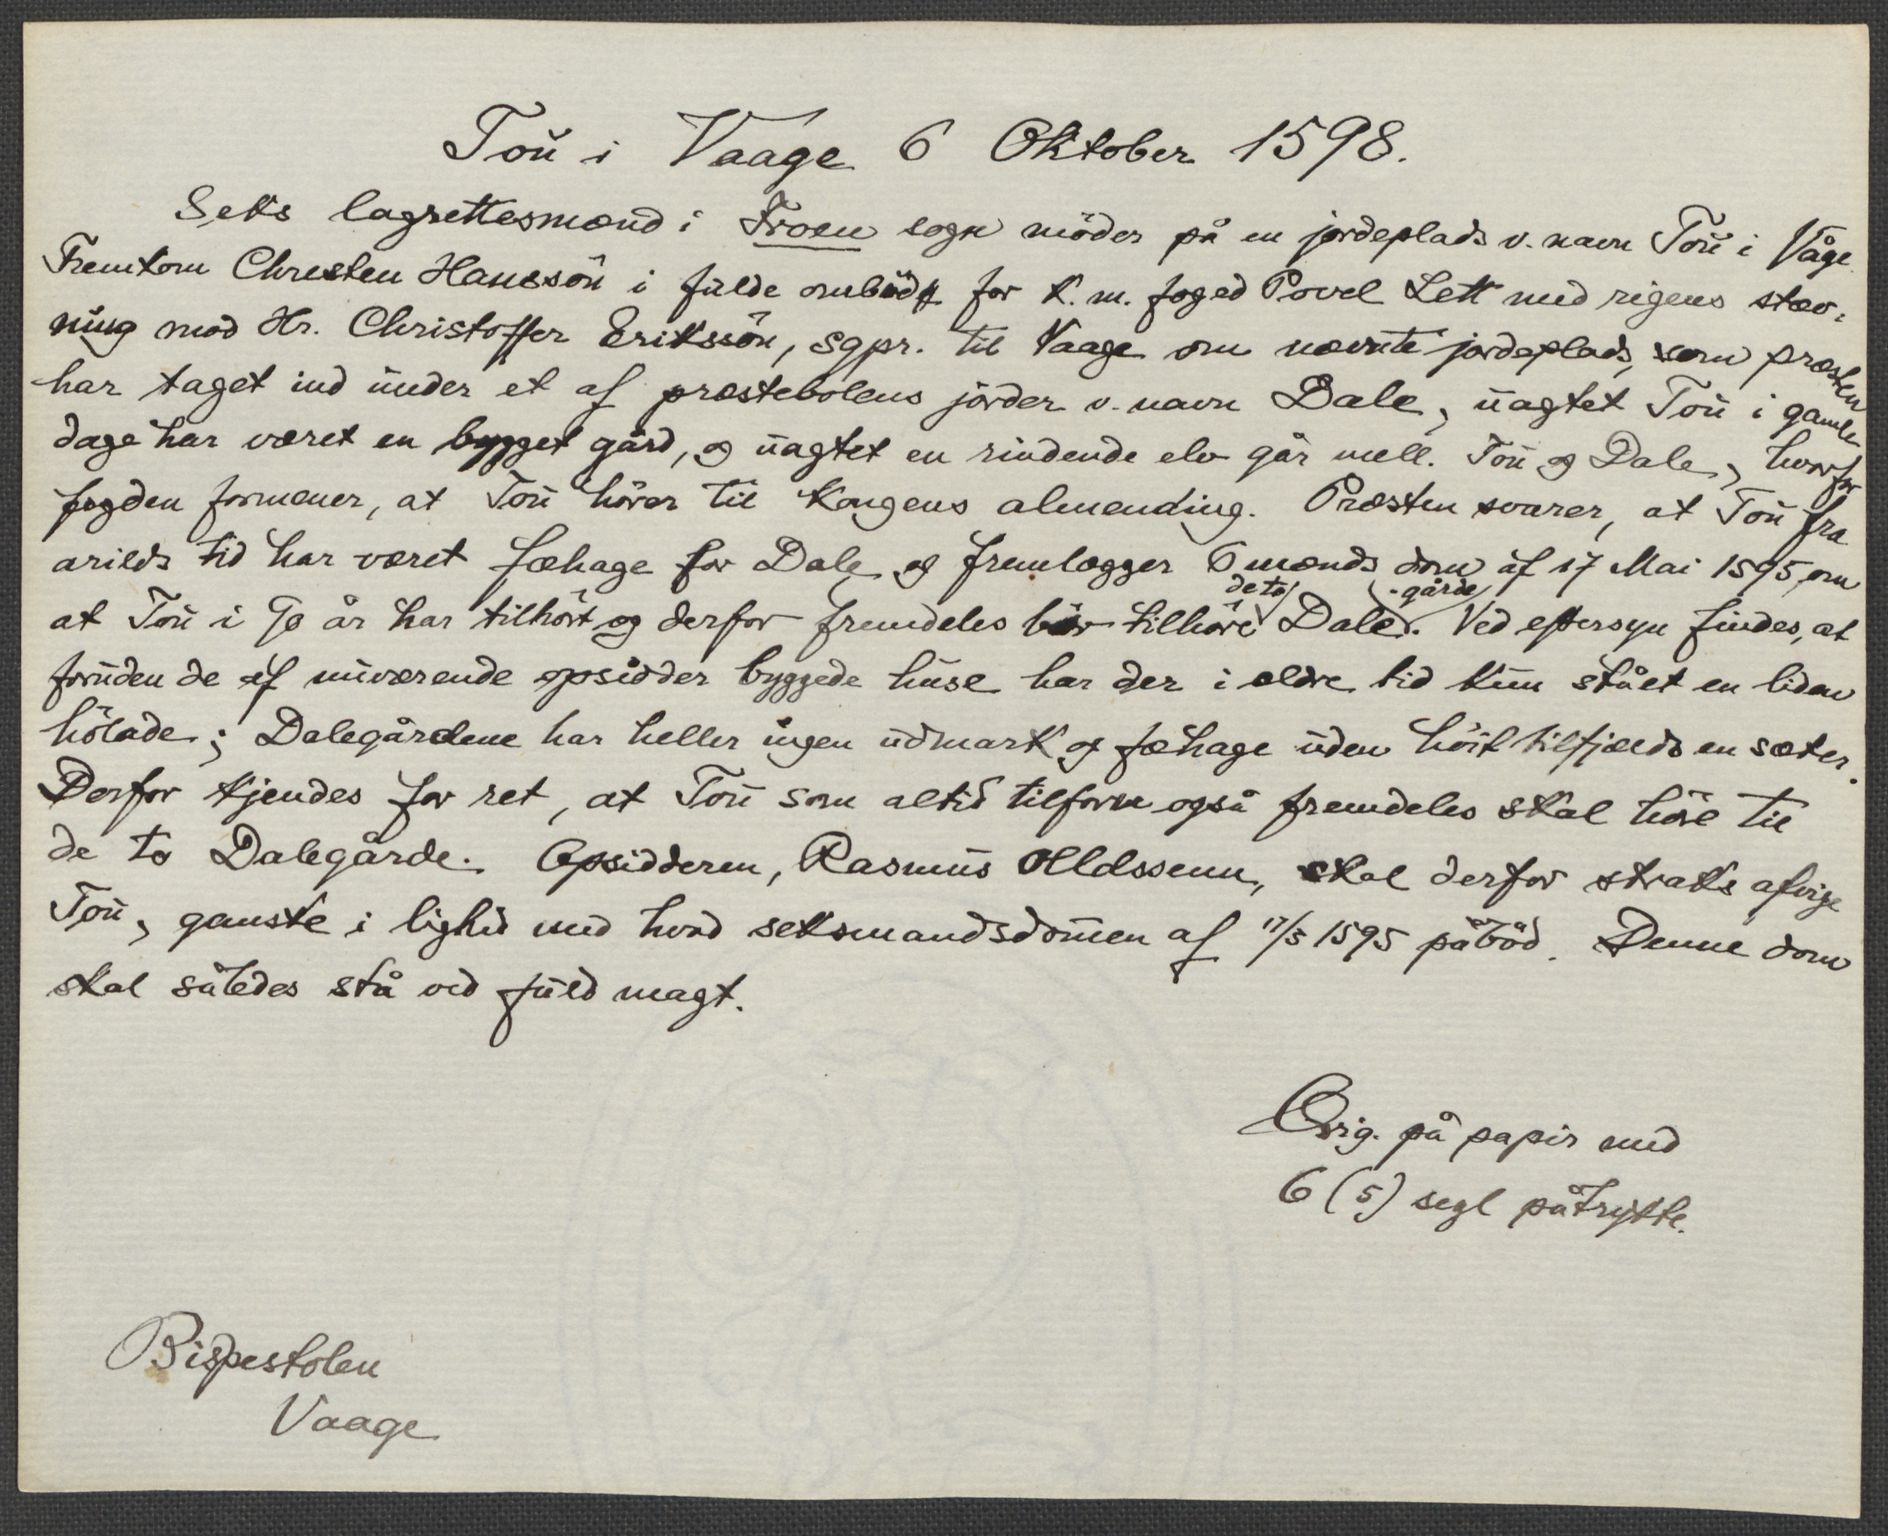 Toŭ i Vaage 6 Oktober 1598.
Seks lagrettesmænd i Froen sogn möder på en jordeplads v. navn Toŭ i Våge.
Fremkom Chresten Hanssön i fulde ombud for k. m. foged Povel Lett med rigens stæv-
ning mod Hr. Christoffer Erikssön, sgpr. til Vaage om nævnte jordeplads, som præsten
har taget ind under et af præstebolens jorder v. navn Dale, uagtet Toŭ i gamle
dage har været en bygget gård, og uagtet en rindende elv går mell. Toŭ og Dale, hvorfor
fogden formener, at Toŭ hörer til Kongens almending. Præsten svarer, at Toŭ fra
arilds tid har været fæhage for Dale og fremlægger 6 mænds dom af 17 Mai 1595 om
at Toŭ i 90 år har tilhört og derfor fremdeles bör tilhöre de to Dale-gårde. Ved eftersyn findes, at
foruden de af nuværende opsidder byggede huse har der i ældre tid kun stået en liden
hölade; Dalegårdene har heller ingen udmark og fæhage uden höit tilfjælds en sæter.
Derfor kjendes for ret, at Toŭ som altid tilforn også fremdeles skal höre til
de to Dalegårde. Opsidderen, Rasmus Olldssenn, skal derfor straks afvige
Toŭ, ganske i lighed med hvad seksmandsdommen af 17/5 1595 påböd. Denne dom
skal således stå ved fuld magt.
Orig. på papir med
6 (5) segl påtrykte.
Bispestolen
Vaage